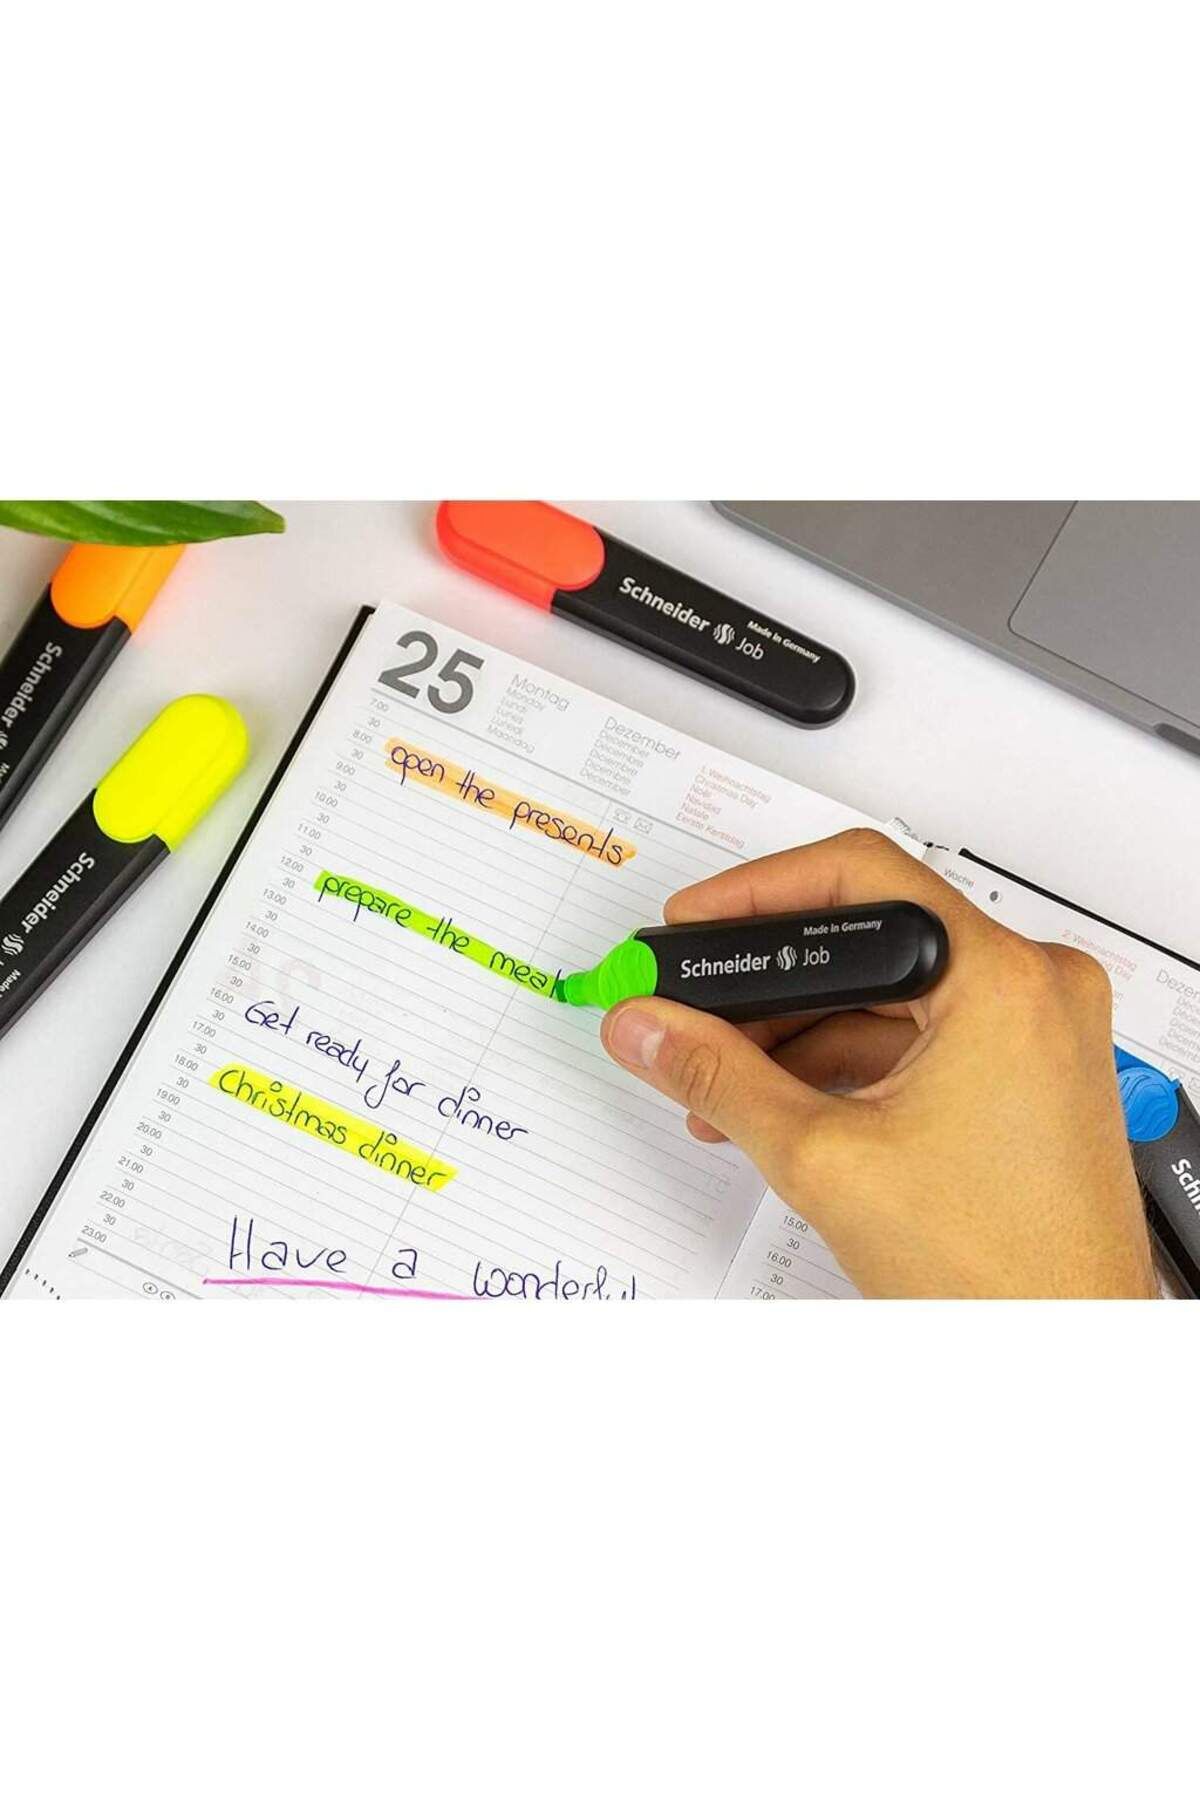 Schneider Job
Made in Germany
Schneider
Schneider
25
Montag
Monday
Lundi
Lunes
Lunedì
Maandag
Dezember
December
Décembre
Diciembre
Dicembre
December
1. Weihnachtstag
Christmas Day
Noël
Navidad
Natale
Eerste Kerstdag
7.00
30
8.00
30
9.00
30
10.00
30
11.00
30
12.00
30
13.00
30
14.00
30
15.00
30
16.00
30
17.00
30
18.00
30
19.00
30
20.00
30
21.00
30
22.00
30
23.00
open the presents
prepare the meal
Get ready for dinner
Christmas dinner
Have a wonderful
Schneider Job
Made in Germany
Woche
2. Weihnachtstag
15.00
30
16.00
30
17.00